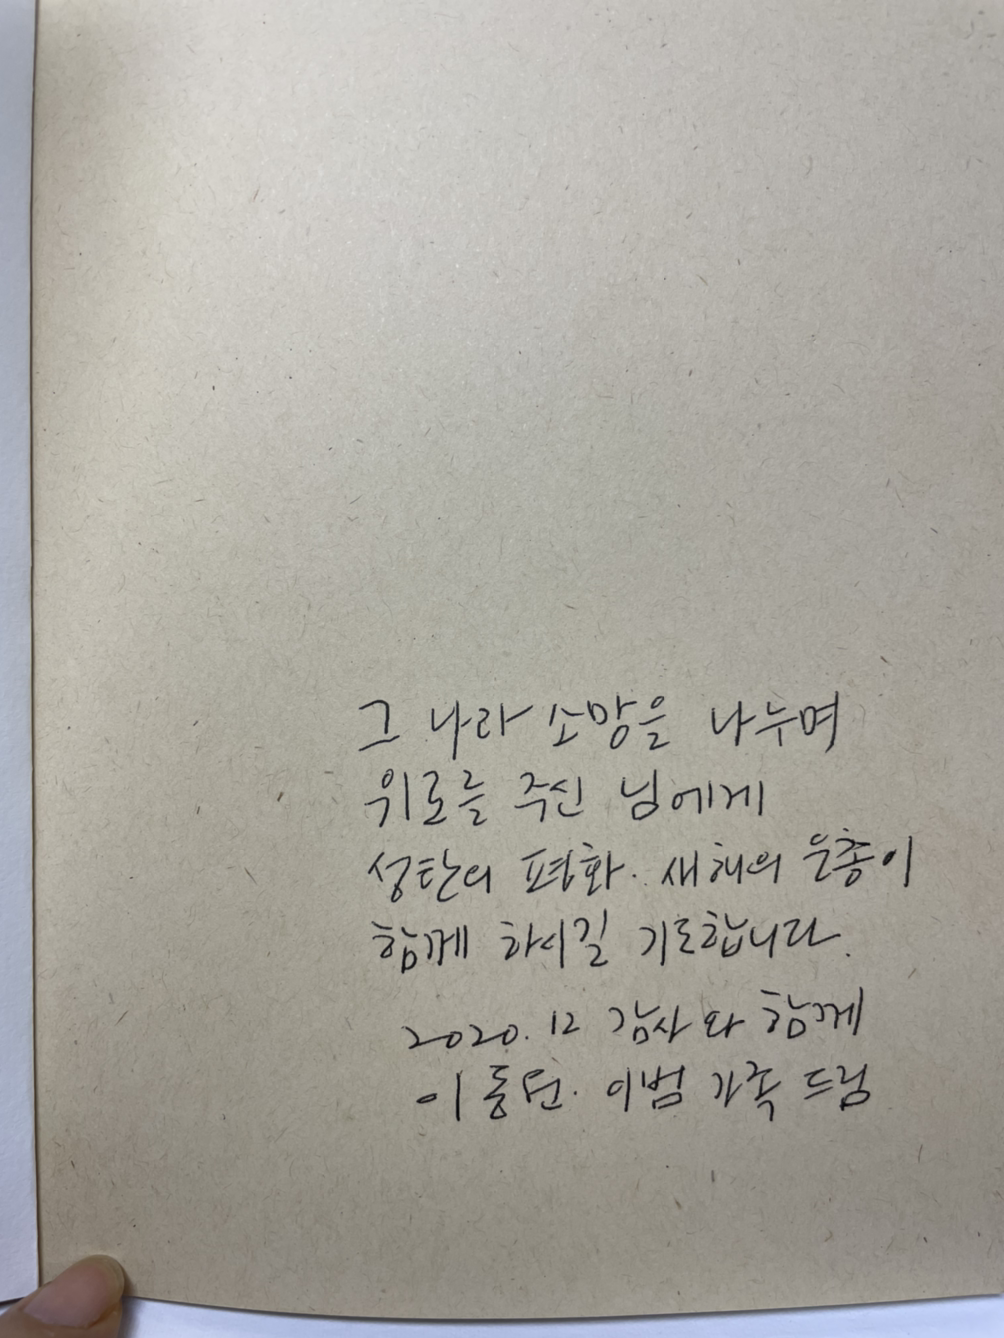 그 나라 소망을 나누며
위로를 주신 님에게
성탄의 평화. 새해의 은총이
함께 하시길 기도합니다.
2020. 12 감사와 함께
이범 가족 드림